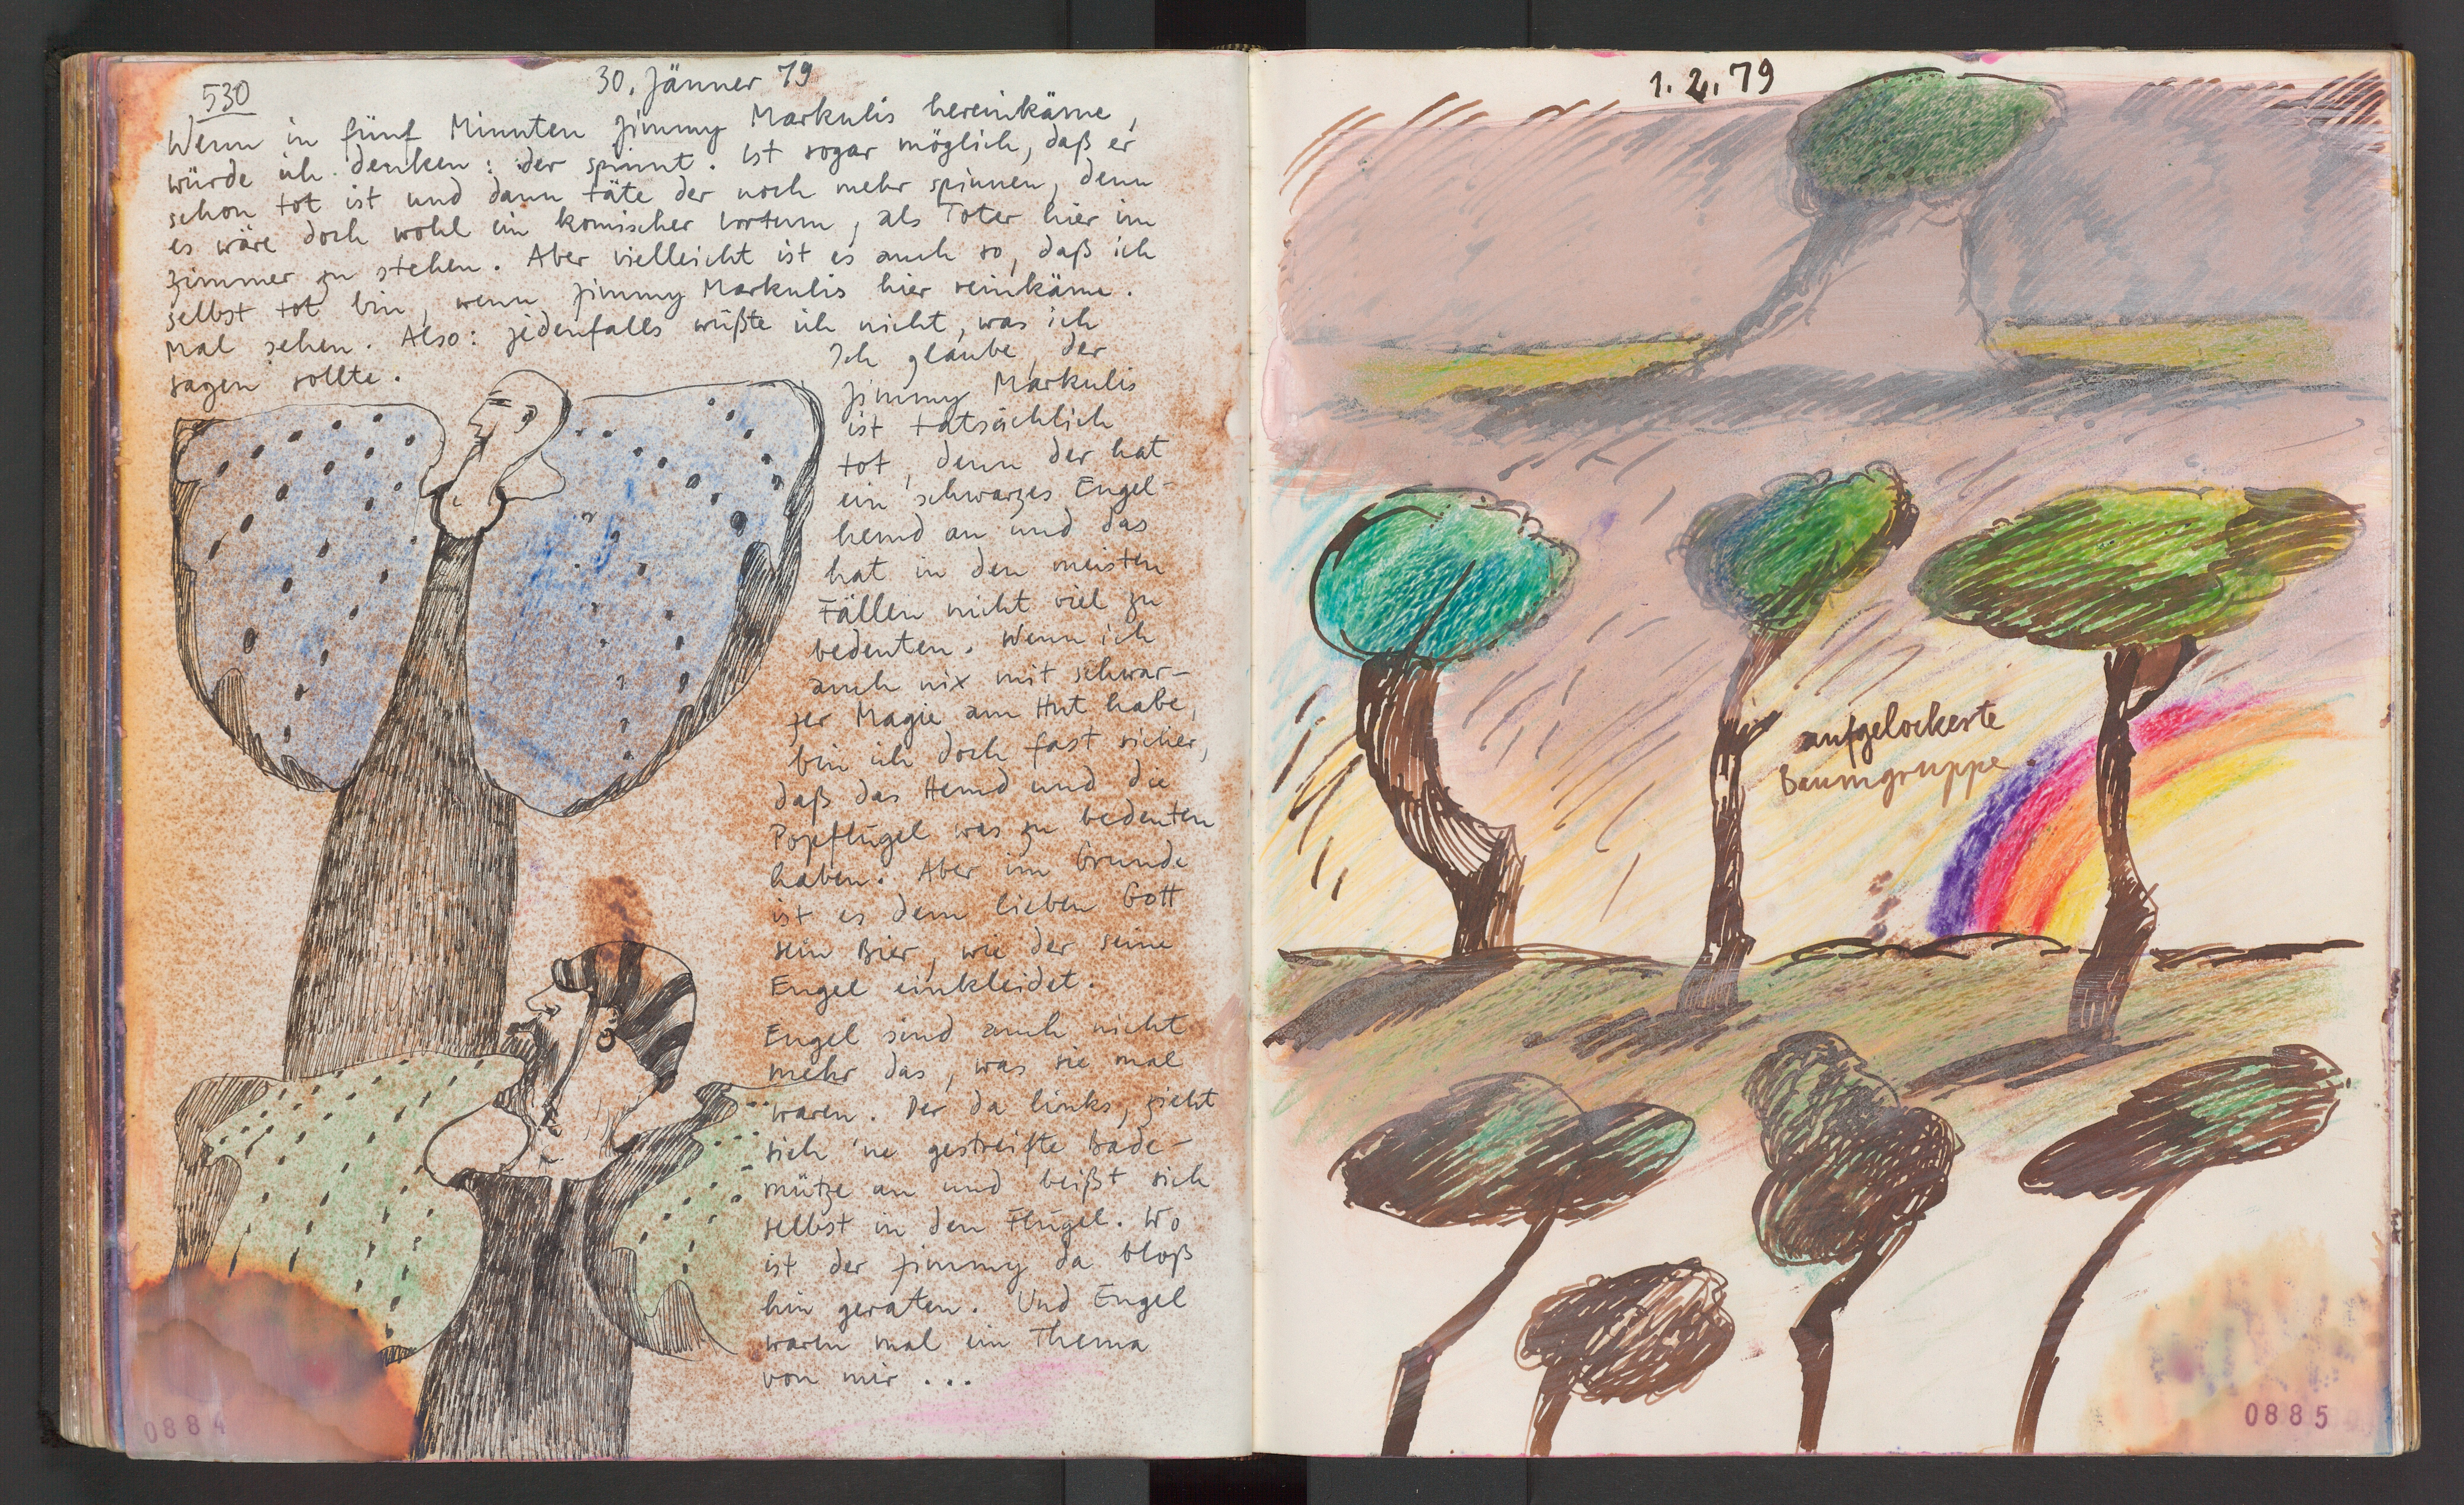 530
30. Jänner 79
Wenn in fünf Minuten Jimmy Markulis hereinkäme,
würde ich denken: der spinnt. Ist sogar möglich, daß er
schon tot ist und dann täte der noch mehr spinnen, denn
es wäre doch wohl ein komischer Irrtum, als Toter hier im
Zimmer zu stehen. Aber vielleicht ist es auch so, daß ich
selbst tot bin, wenn Jimmy Markulis hier reinkäme.
Mal sehen. Also: jedenfalls wüßte ich nicht, was ich
sagen sollte.
Ich glaube, der
Jimmy Markulis
ist tatsächlich
tot, denn der hat
ein schwarzes Engel-
hemd an und das
hat in den meisten
Fällen nicht viel zu
bedeuten. Wenn ich
auch nix mit schwar-
zer Magie am Hut habe,
bin ich doch fast sicher,
daß das Hemd und die
Popflügel was zu bedeuten
haben. Aber im Grunde
ist es dem lieben Gott
sein Bier, wie der seine
Engel einkleidet.
Engel sind auch nicht
mehr das, was sie mal
waren. Der da links, zieht
sich 'ne gestreifte Bade-
mütze an und beißt sich
selbst in den Flügel. Wo
ist der Jimmy da bloß
hin geraten. Und Engel
waren mal ein Thema
von mir...
0884
1.2.79
aufgelockerte
Baumgruppe
0885